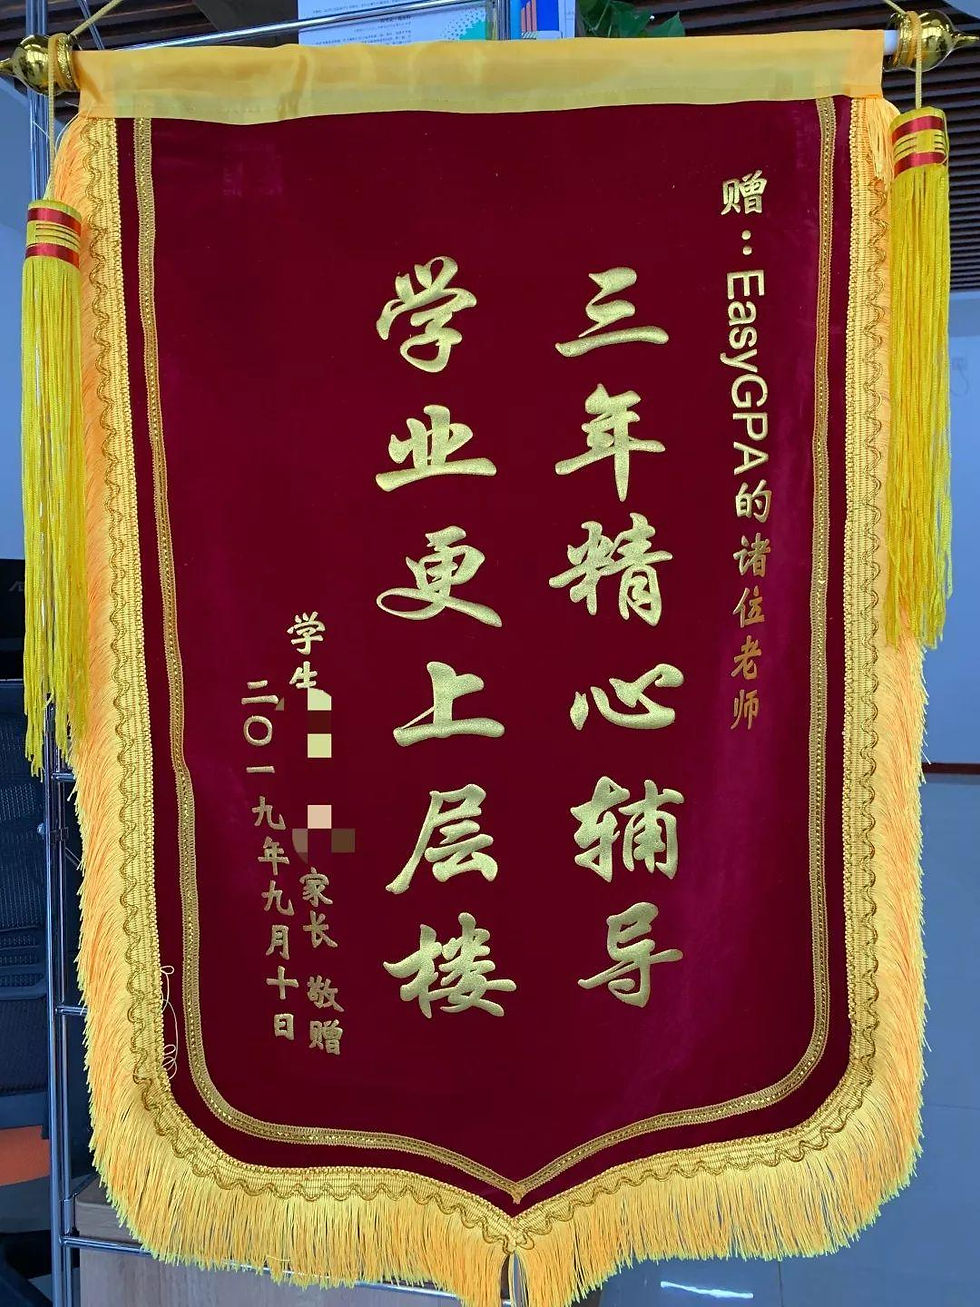 赠：EasyGPA的诸位老师
三年精心辅导
学业更上层楼
学生 家长 敬赠
二〇一九年九月十日